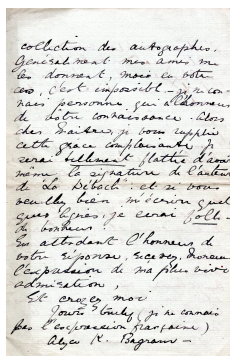 collection des autographes.
Généralment mes amis me
les donnent, mais en votre
cas, c'est impossible - je ne con-
nais personne, qui a l'honneur
de votre connaissance. Alors
cher Maître, je vous supplie
cette grace complaisante je
serai tellement flattée d'avoir
même la signature de l'auteur
de La Débâcle: et si vous
veuillez bien m'écrire quel
ques lignes, je serai folle-
de bonheur
En attendant l'honneur de
votre réponse, recevez, Monsieur
l'expression de ma plus vive
admiration,
Et croyez moi
Yours truly (je ne connais
pas l'expression française)
Alyce K.